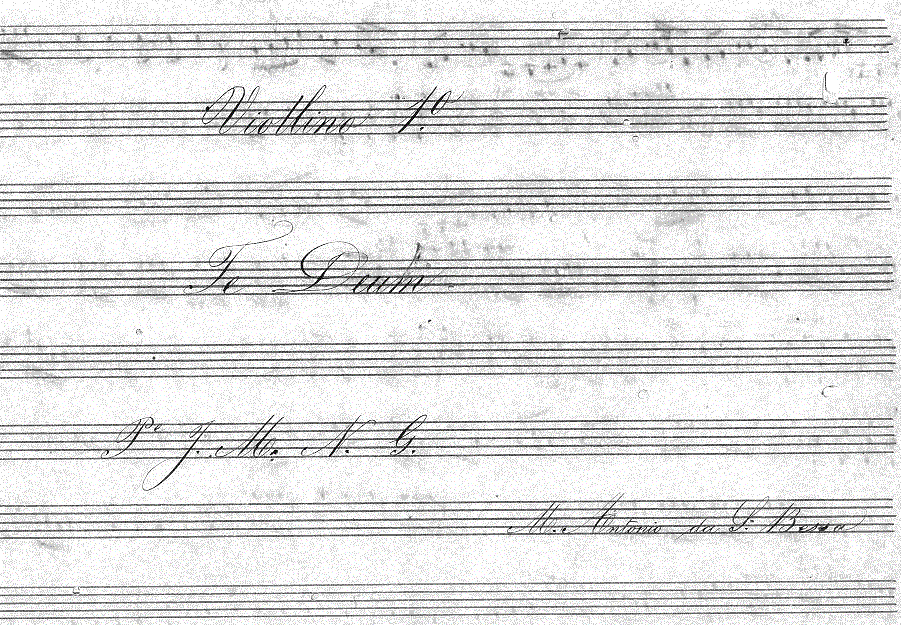 Viollino 1º
Te Deum
Pe J. M. N. G.
M. Antonio da S.ª Bessa